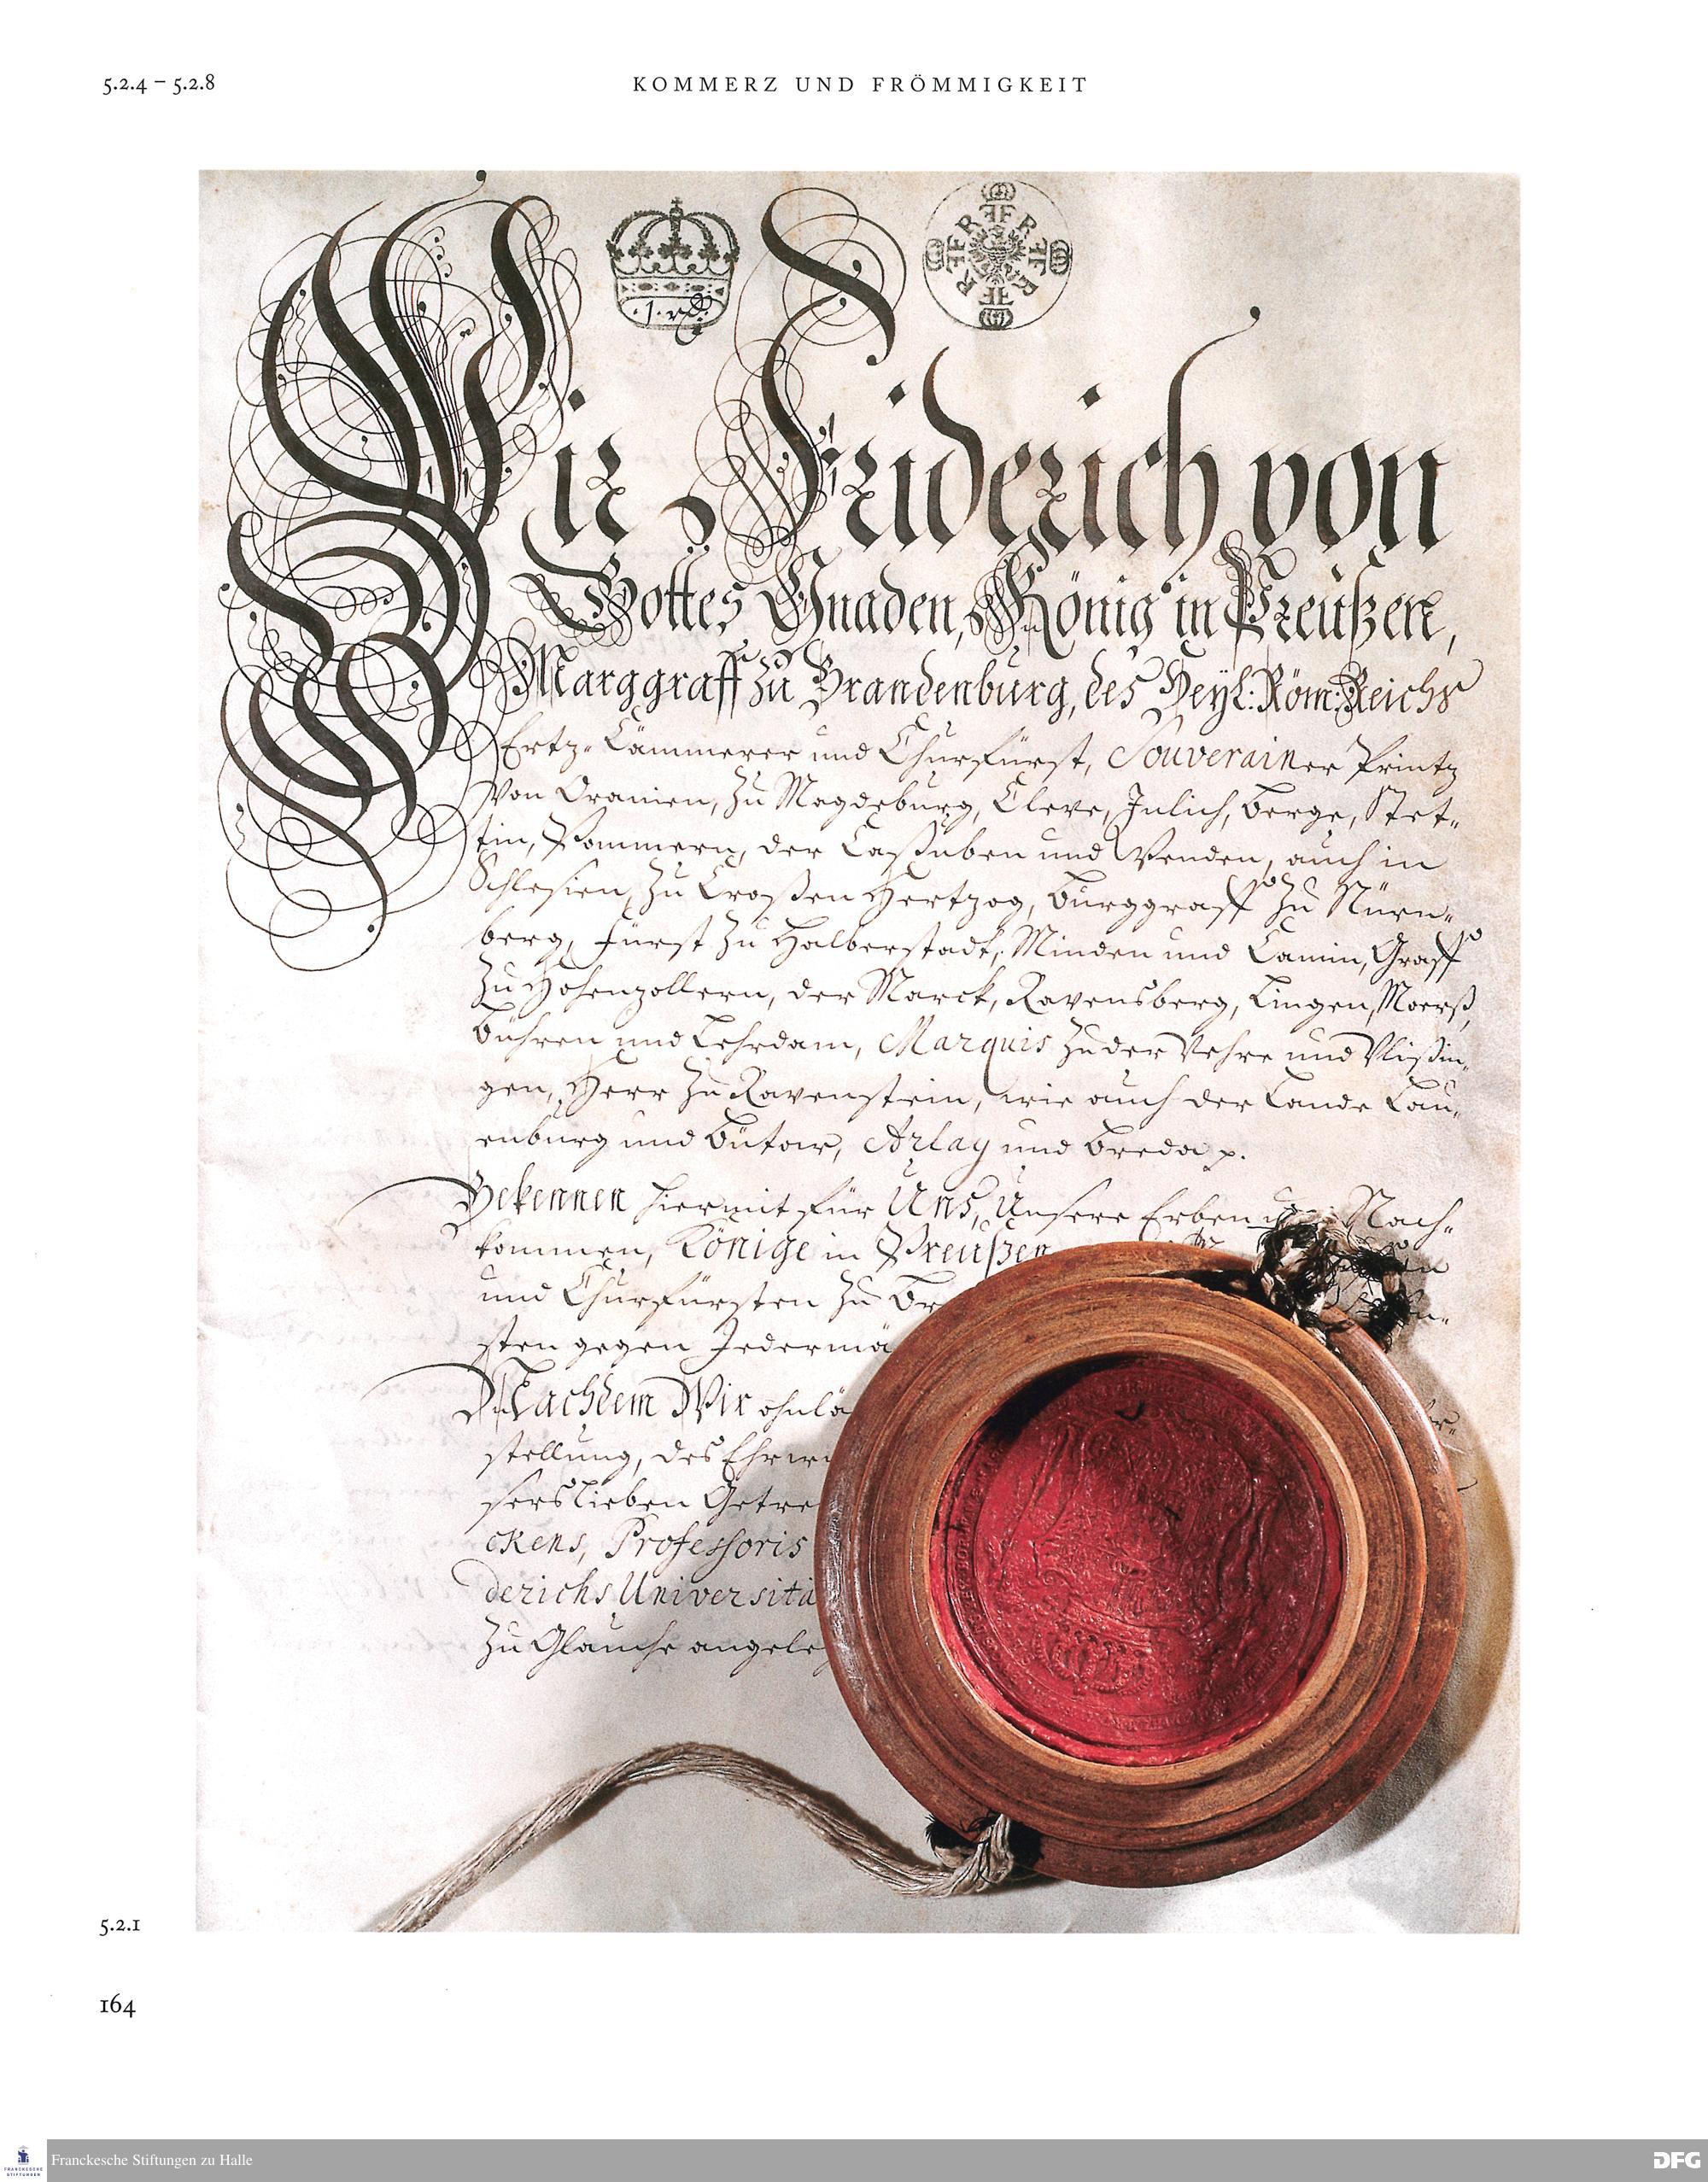 5.2.4 – 5.2.8
KOMMERZ UND FRÖMMIGKEIT
Wir Friderich von
Gottes Gnaden, König in Preußen,
Marggraff zu Brandenburg, des Heyl: Röm: Reichs
Ertz-Cämmerer und Churfürst, Souverainer Printz
Von Oranien, zu Magdeburg, Cleve, Jülich, Berge, Stet-
tin, Pommern, der Caßuben und Wenden, auch in
Schlesien, zu Croßen Hertzog, Burggraff zu Nürn-
berg, Fürst zu Halberstadt, Minden und Camin, Graff
zu Hohenzollern, der Marck, Ravensberg, Lingen, Moerß,
Bühren und Lehrdam, Marquis zu der Vehre und Vlißin-
gen, Herr zu Ravenstein, wie auch der Lande Lau-
enburg und Bütow, Arlay und Breda p.
Bekennen hiermit für Uns, Unsere Erben und Nach-
kommen, Könige in Preußen
und Churfürsten zu Br
sten gegen Jedermä
Nachdem Wir ohnlä
stellung, des Ehrw
sers Lieben Getre
ckens, Professoris
derichs Universitä
zu Glauche angele
5.2.1
164
Franckesche Stiftungen zu Halle
FRANCKESCHE
STIFTUNGEN
DFG